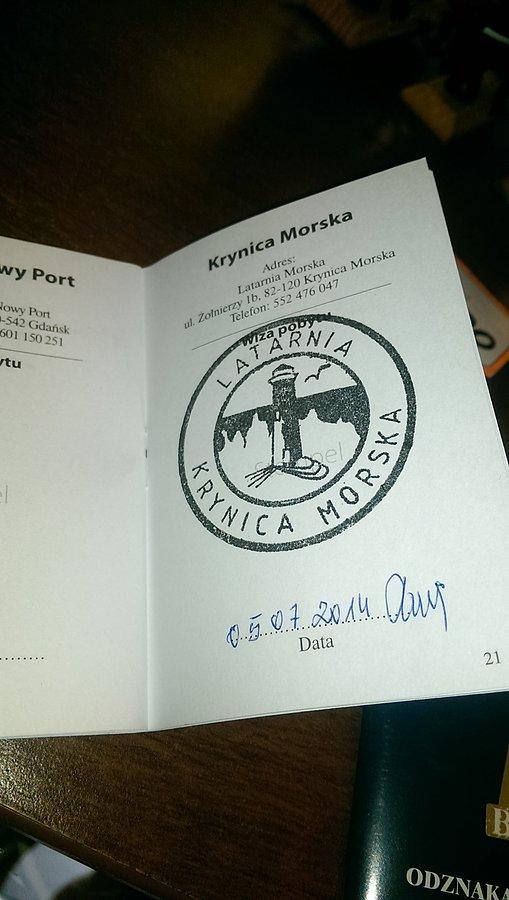 wy Port
Nowy Port
-542 Gdańsk
601 150 251
ytu
Krynica Morska
Adres:
Latarnia Morska
ul. Żołnierzy 1b, 82-120 Krynica Morska
Telefon: 552 476 047
Wiza pobytu
LATARNIA
KRYNICA MORSKA
05 07 2014
Data
21
ODZNAKA